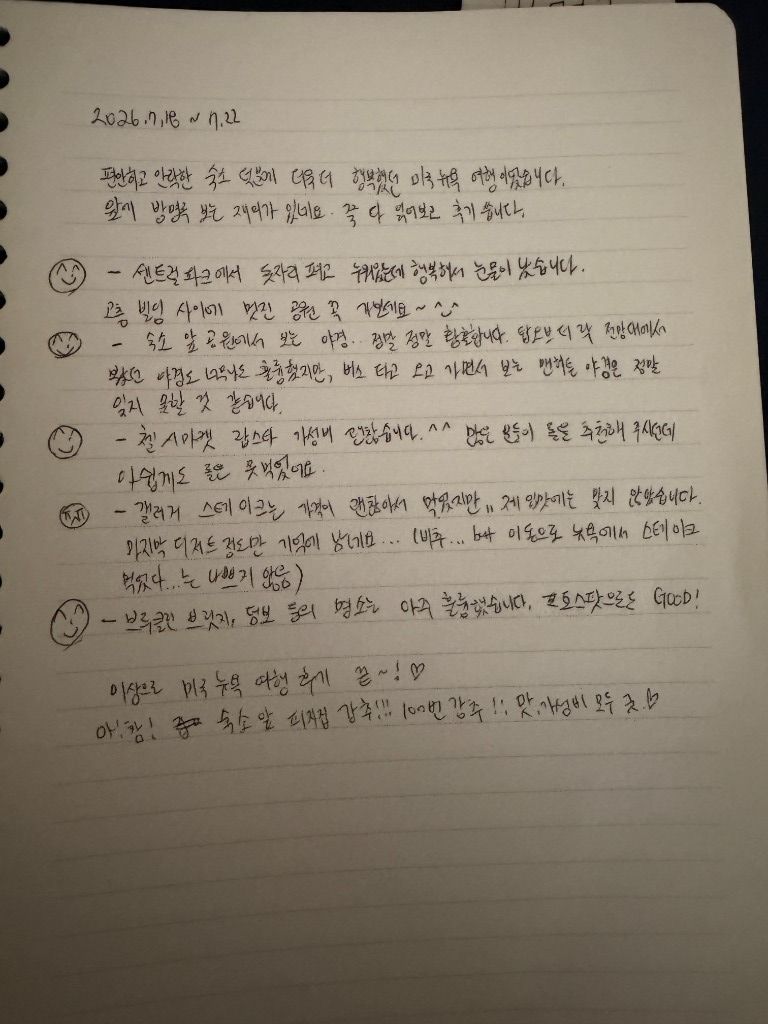 2026.7.18 ~ 7.22
편안하고 안락한 숙소 덕분에 더욱 더 행복했던 미국 뉴욕 여행이었습니다.
앞에 방명록 보는 재미가 있네요. 쭉 다 읽어보고 후기 씁니다.
- 센트럴 파크에서 돗자리 펴고 누워있는데 행복해서 눈물이 났습니다.
고층 빌딩 사이에 멋진 공원 꼭 가보세요~ ^_^
- 숙소 앞 공원에서 보는 야경.. 정말 정말 황홀합니다. 탑오브더락 전망대에서
봤던 야경도 너무나도 훌륭했지만, 버스 타고 오고 가면서 보는 맨해튼 야경은 정말
잊지 못할 것 같습니다.
- 첼시마켓 랍스타 가성비 괜찮습니다.^^ 많은 분들이 롤을 추천해 주시던데
아쉽게도 롤은 못먹었어요.
- 갤러거 스테이크는 가격이 괜찮아서 먹었지만,, 제 입맛에는 맞지 않았습니다.
마지막 디저트 정도만 기억에 남네요... (비추... but 이돈으로 뉴욕에서 스테이크
먹었다...는 나쁘지 않음)
- 브루클린 브릿지, 덤보 등의 명소는 아주 훌륭했습니다. 포토스팟으로도 GOOD!
이상으로 미국 뉴욕 여행 후기 끝~! ♡
아! 참! 숙소 앞 피자집 강추!!! 100번 강추!! 맛, 가성비 모두 굿.♡